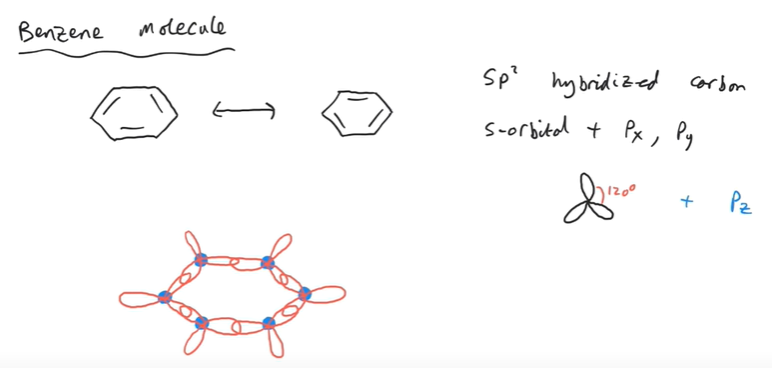 Benzene Molecule
Sp² hybridized carbon
s-orbital + Px, Py
120°
+ Pz